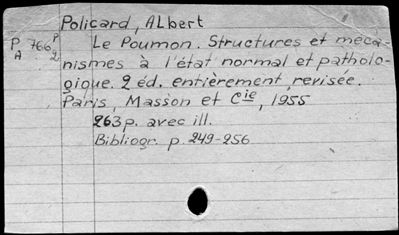 Policard, Albert
P A 766 P 2
Le Poumon. Structures et méca-
nismes à l'état normal et patholo-
gique. 2 éd. entièrement revisée.
Paris, Masson et Cie, 1955
263 p. avec ill.
Bibliogr. p. 249-256